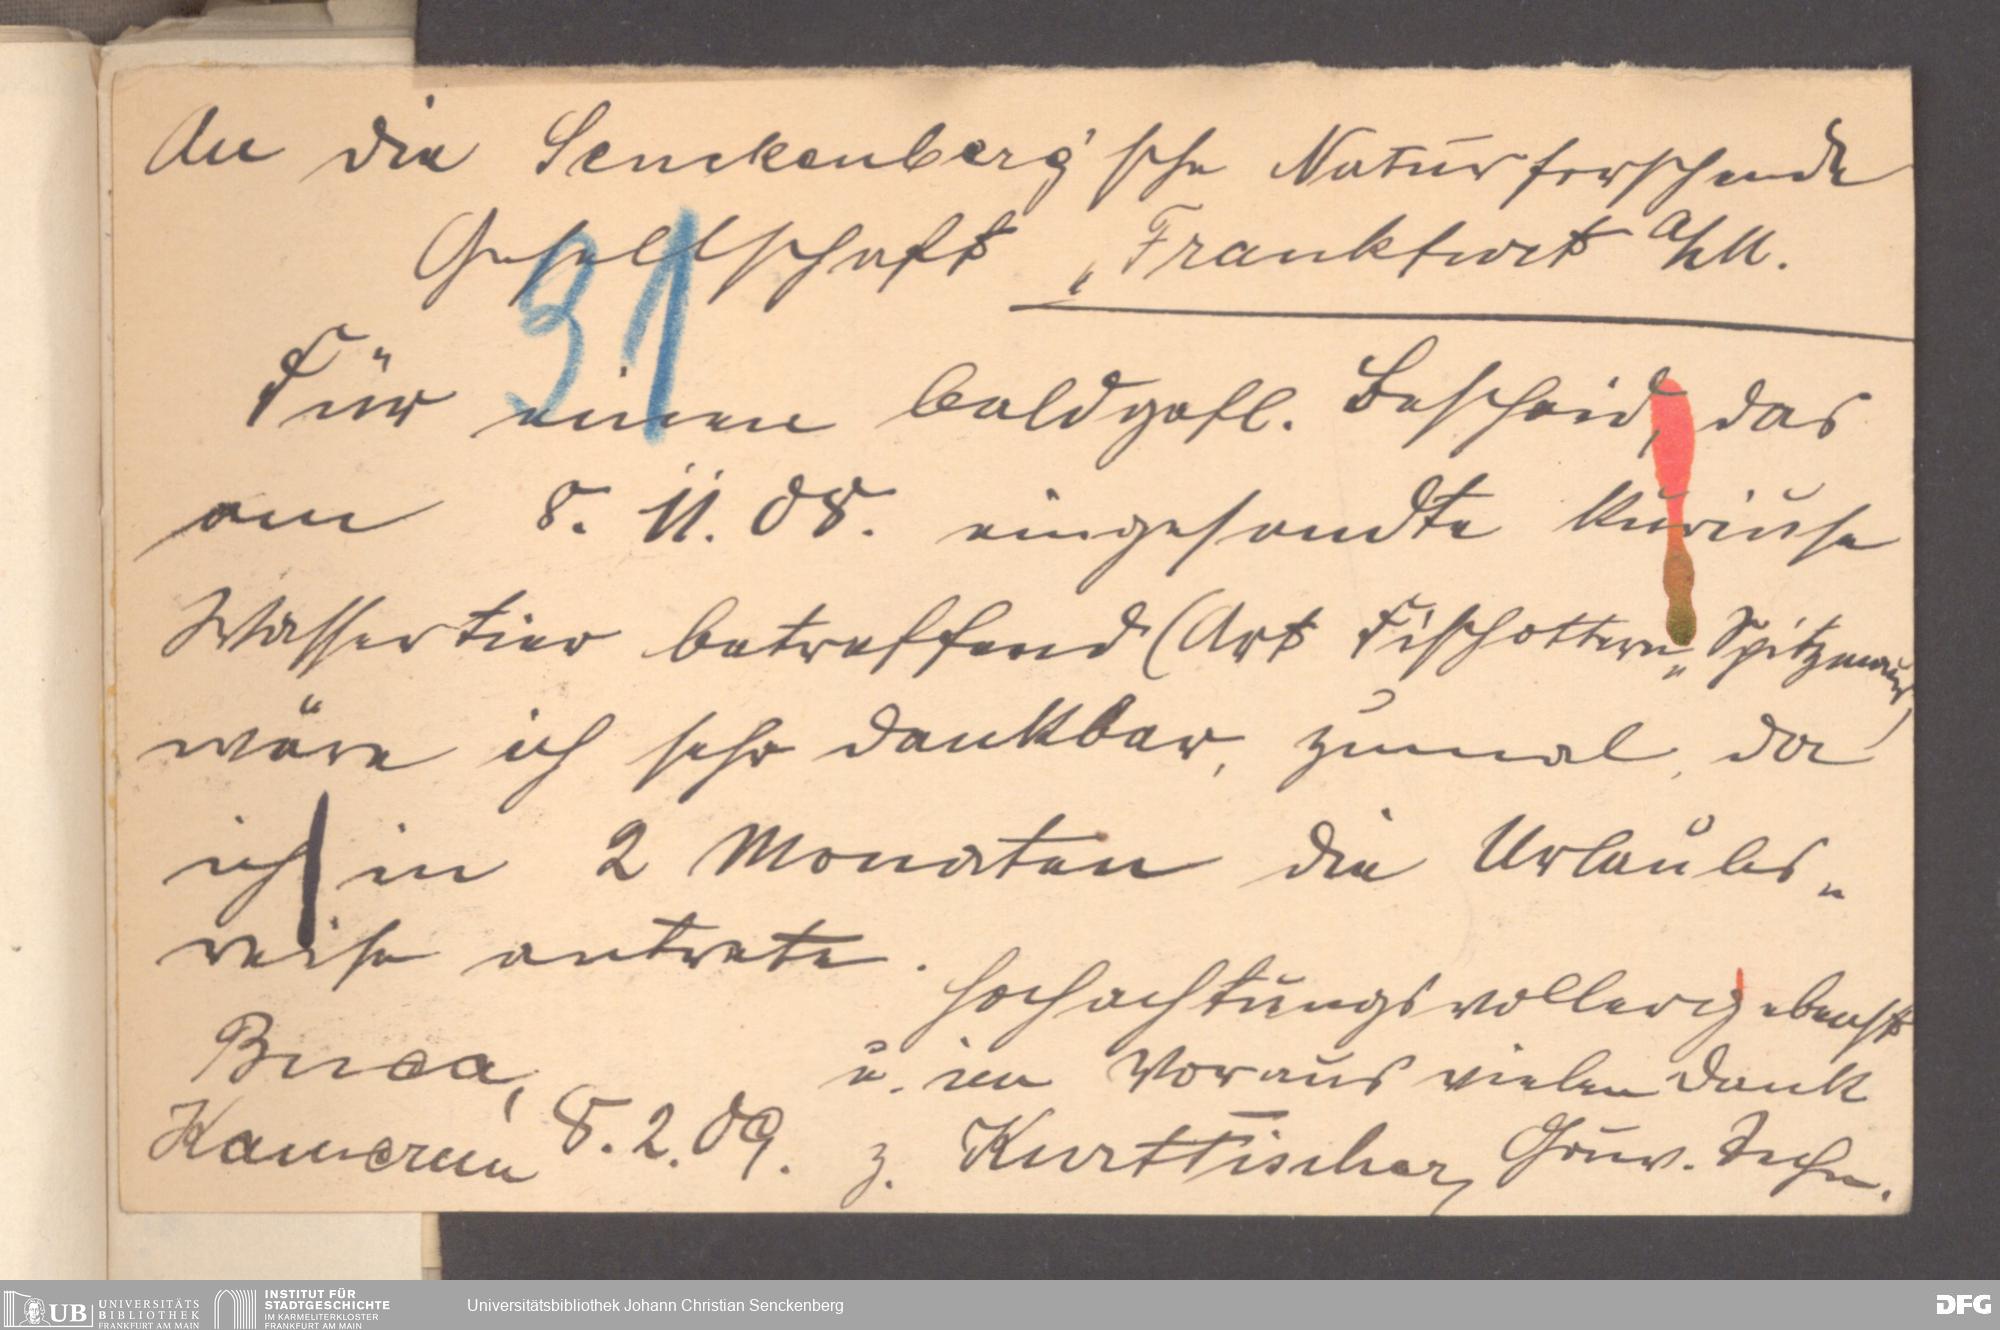 An die Senckenberg'sche Naturforschende
Gesellschaft, Frankfurt a/M.
31
Für einen baldgefl. Bescheid, das
am 8. 11. 08. eingesandte kuriose
Wassertier betreffend (Art Fischottern-Spitzmaus)
wäre ich sehr dankbar, zumal, da
ich in 2 Monaten die Urlaubs-
reise antrete.
Hochachtungsvoll ergebenst
u. im Voraus vielen Dank
Buea,
Kamerun 8.2.09. z. Kurt Fischer, Gouv. Techn.
UB UNIVERSITÄTS
BIBLIOTHEK
FRANKFURT AM MAIN
INSTITUT FÜR
STADTGESCHICHTE
IM KARMELITERKLOSTER
FRANKFURT AM MAIN
Universitätsbibliothek Johann Christian Senckenberg
DFG